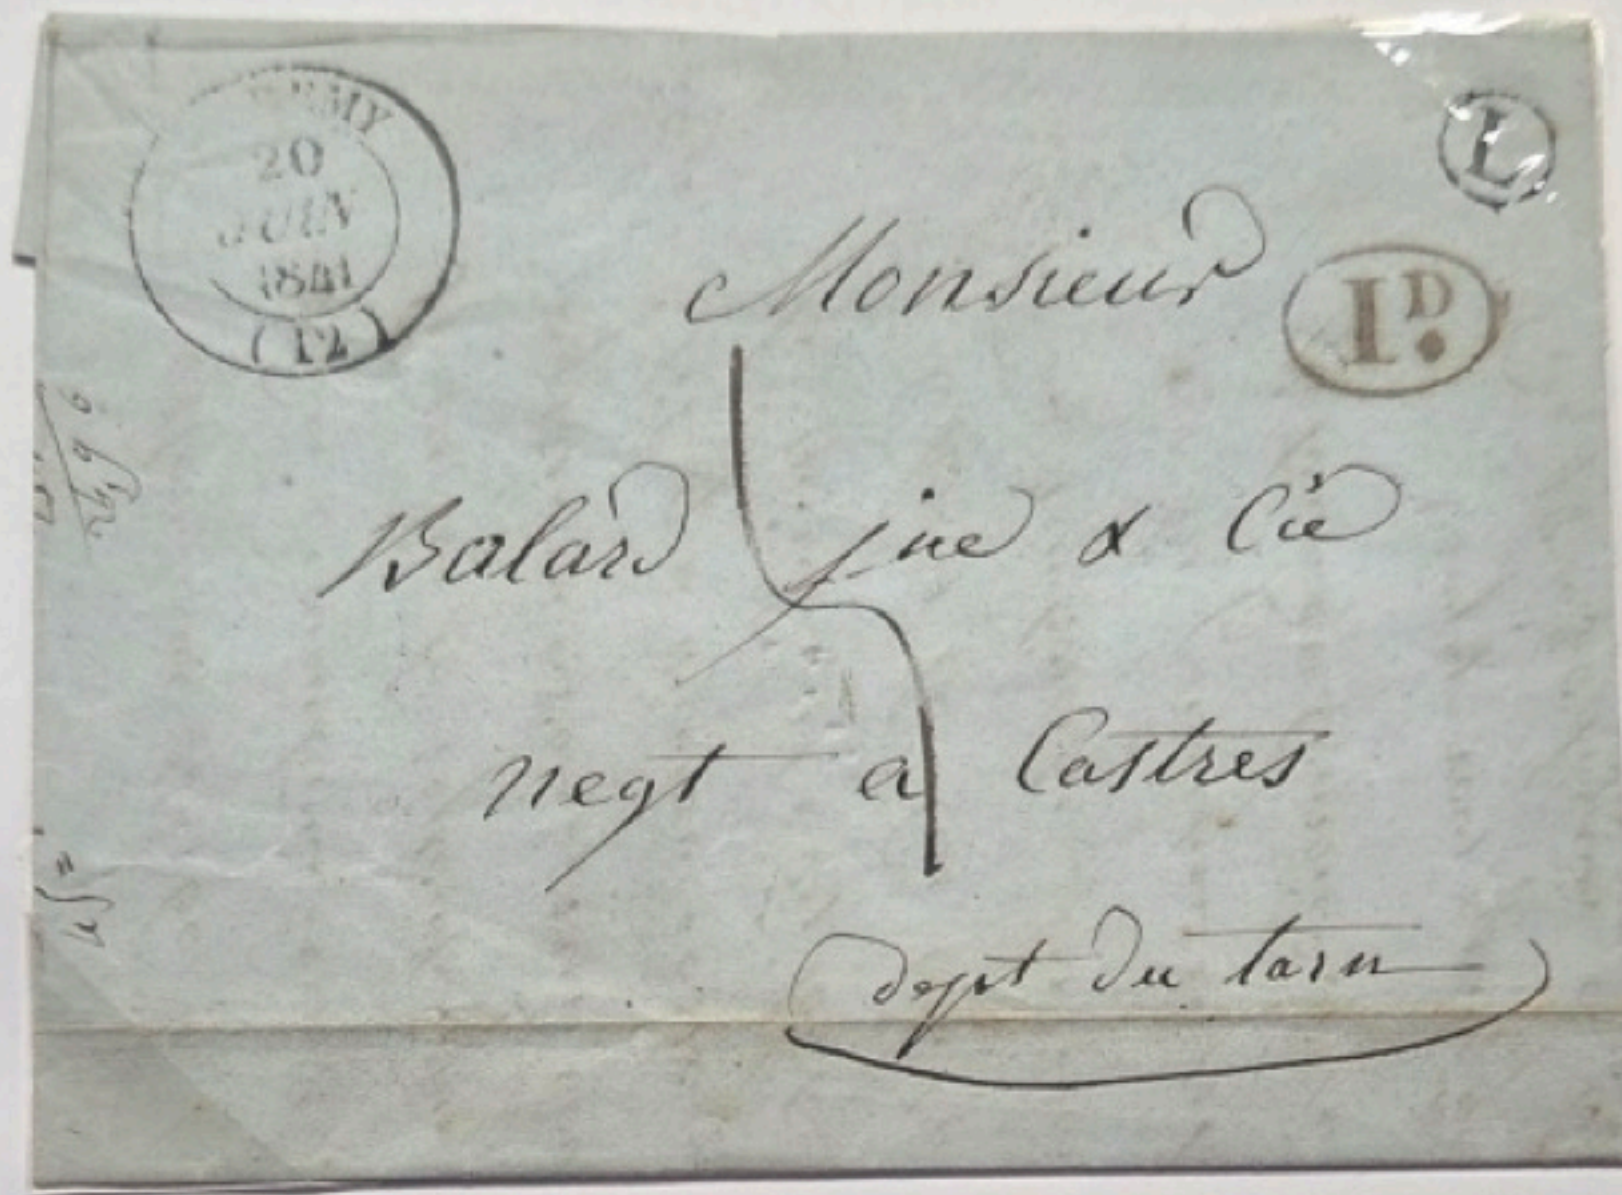 20
JUIN
1841
(12)
L
1D.
Monsieur
5
Balard jne & Cie
negt a Castres
dept du tarn